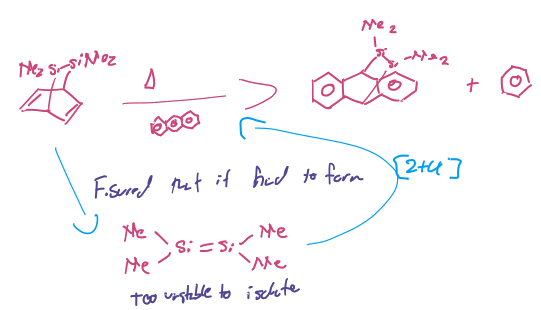 Me2
Si Si Me2
Me2 Si Si Me2
Δ
+
[2+4]
Figured that it had to form
Me Me
Si = Si
Me Me
too unstable to isolate